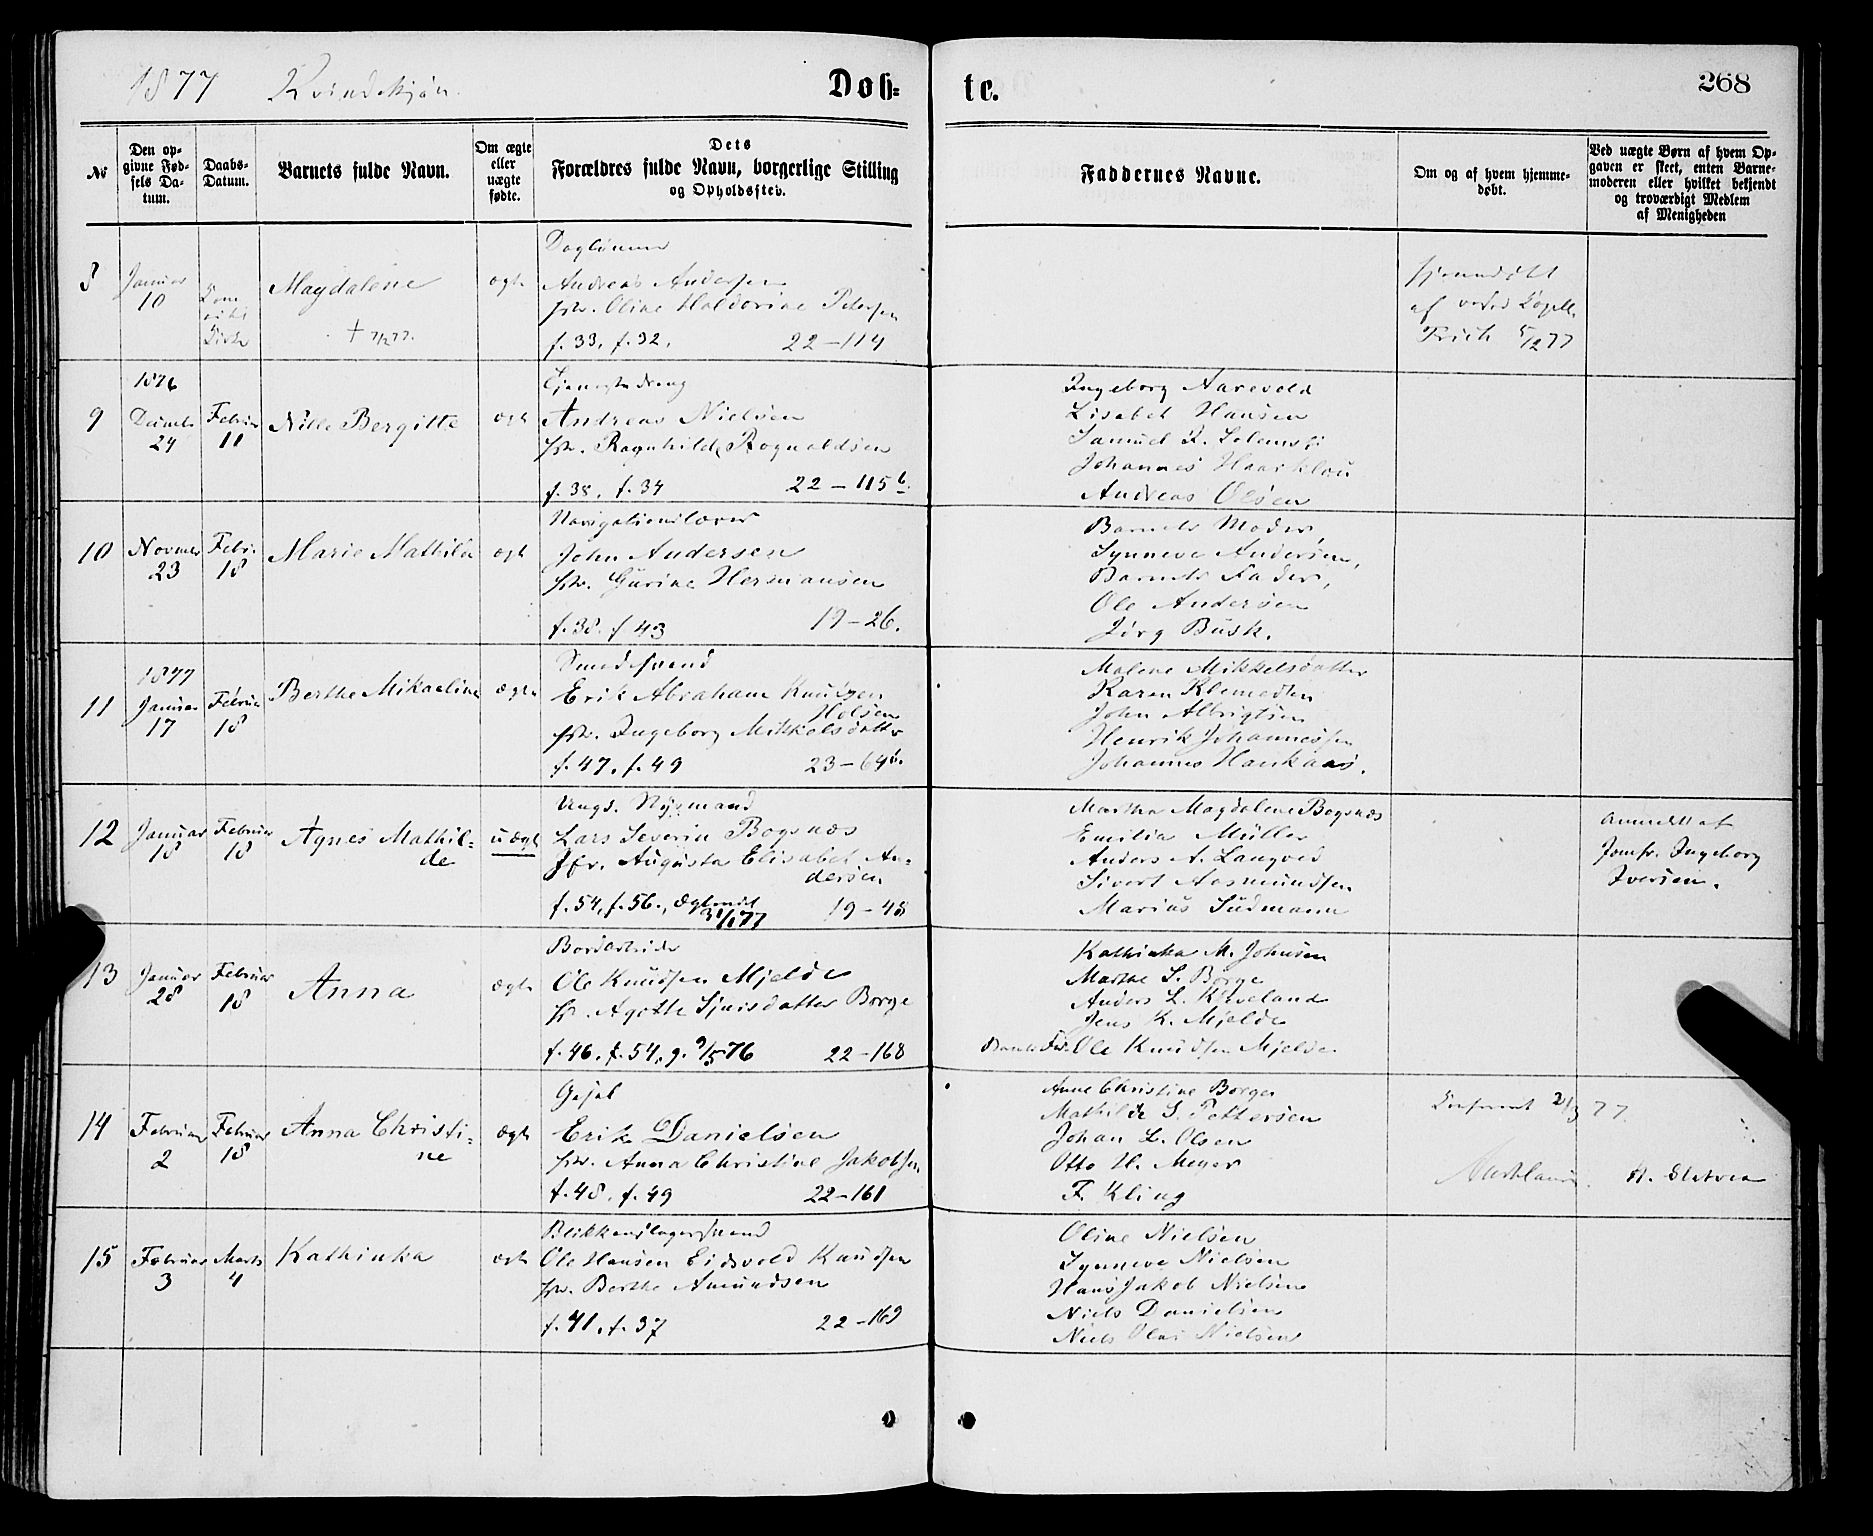 1877 Kvindekjøn.
Døb=
te.
268
No
Den op-
givne Fød-
sels Da-
tum.
Daabs-
Datum.
Barnets fulde Navn.
Om ægte
eller
uægte
fødte.
Dets
Forældres fulde Navn, borgerlige Stilling
og Opholdssted.
Faddernes Navne.
Om og af hvem hjemme-
døbt.
Ved uægte Børn af hvem Op-
gaven er skeet, enten Barne-
moderen eller hvilket bekjendt
og troværdigt Medlem
af Menigheden
8
Januar
10
Magdalene
ægte
Andreas Andersen
Oline Haldorine Petersen
f. 33, f. 32. 22-114
hjemmedøbt
af
5/2 77
1876
9
Decmbr
24
Februar
11
Nille Bergitte
ægte
Tjenestedreng
Andreas Nielsen
Ragnhilde Rognaldsen
f. 38, f. 34 22-115 b.
Ingeborg Aarevold
Lisabet Hansen
Samuel
Johannes Haarklou
Andreas Olsen
10
Novmbr
23
Febr.
18
Marie Mathilde
ægte
John Andersen
Gurine Hermansen
f. 38. f 43 19-26.
Barnets Moder,
Synneve Andersen,
Barnets Fader,
Ole Andersen
Jørg Busk.
1877
11
Januar
17
Februar
18
Berthe Mikaeline
ægte
Smedesvend
Erik Abraham Knudsen
Holsen
Ingeborg Mikkelsdatter
f. 47, f. 49 23-64
Malene Mikkelsdatter
Karen
John Albrigtsen
Henrik Johannessen
Johannes Haukaas.
12
Januar
18
Februar
18
Agnes Mathil=
de
uægte
Ungk.
Lars Severin Bogsnæs
Jfr. Augusta Elisabet An-
dersen
f. 54, f. 56. 31/1 77 19-48
Martha Magdalene Bogsnæs
Emilia Müller
Anders A. Langved
Sivert Aasmundsen
Marius Sudmann
Anmeldt af
Jomfr. Ingeborg
Iversen.
13
Januar
28
Februar
18
Anna
ægte
Ole Knudsen Mjelde
Agothe Sjursdatter Borge
f. 46, f. 54, g. 9/5 76 22-168
Kathinka M. Johnsen
Marthe S. Borge
Anders L.
Jens K. Mjelde
Ole Knudsen Mjelde
14
Februar
2
Februar
18
Anna Christi=
ne
ægte
Gesel
Erik Danielsen
Anna Christine Jakobsen
f. 48, f. 49 22-161
Anne Christine Borge
Mathilde S. Pettersen
Johan L. Olsen
Otto H. Meyer
F. Kling
77.
15
Februar
3
Marts
4
Kathinka
ægte
Blikkenslagersvend
Ole Hansen Eidsvold Knudsen
Berthe Amundsen
f. 41, f. 37 22-169
Oline Nielsen
Synneve Nielsen
Hans Jakob Nielsen
Niels Danielsen
Niels Olai Nielsen